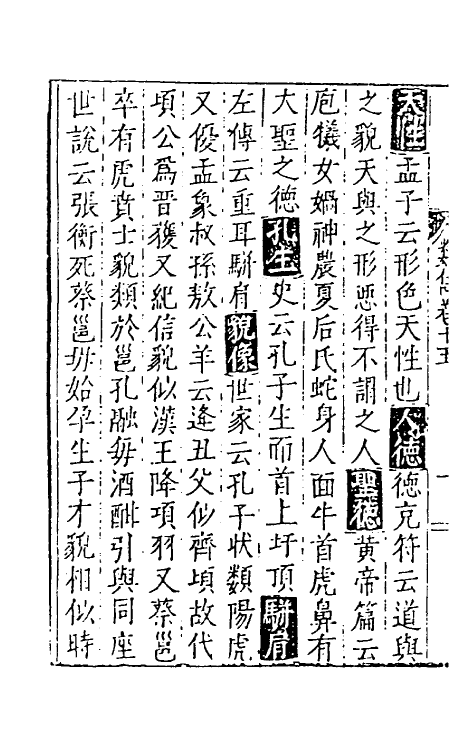 天性孟子云形色天性也人德德充符云道與
之貌天與之形惡得不謂之人聖德黄帝篇云
庖犧女媧神農夏后氏蛇身人面牛首虎鼻有
大聖之德孔生史云孔子生而首上圩頂駢肩
左傳云重耳駢肩貌像世家云孔子狀類陽虎
又優孟象叔孫敖公羊云逢丑父似齊頃故代
頃公為晉獲又紀信貌似漢王降項羽又蔡邕
卒有虎賁士貌類於邕孔融每酒酣引與同座
世說云張衡死蔡邕毋始孕生子才貌相似時